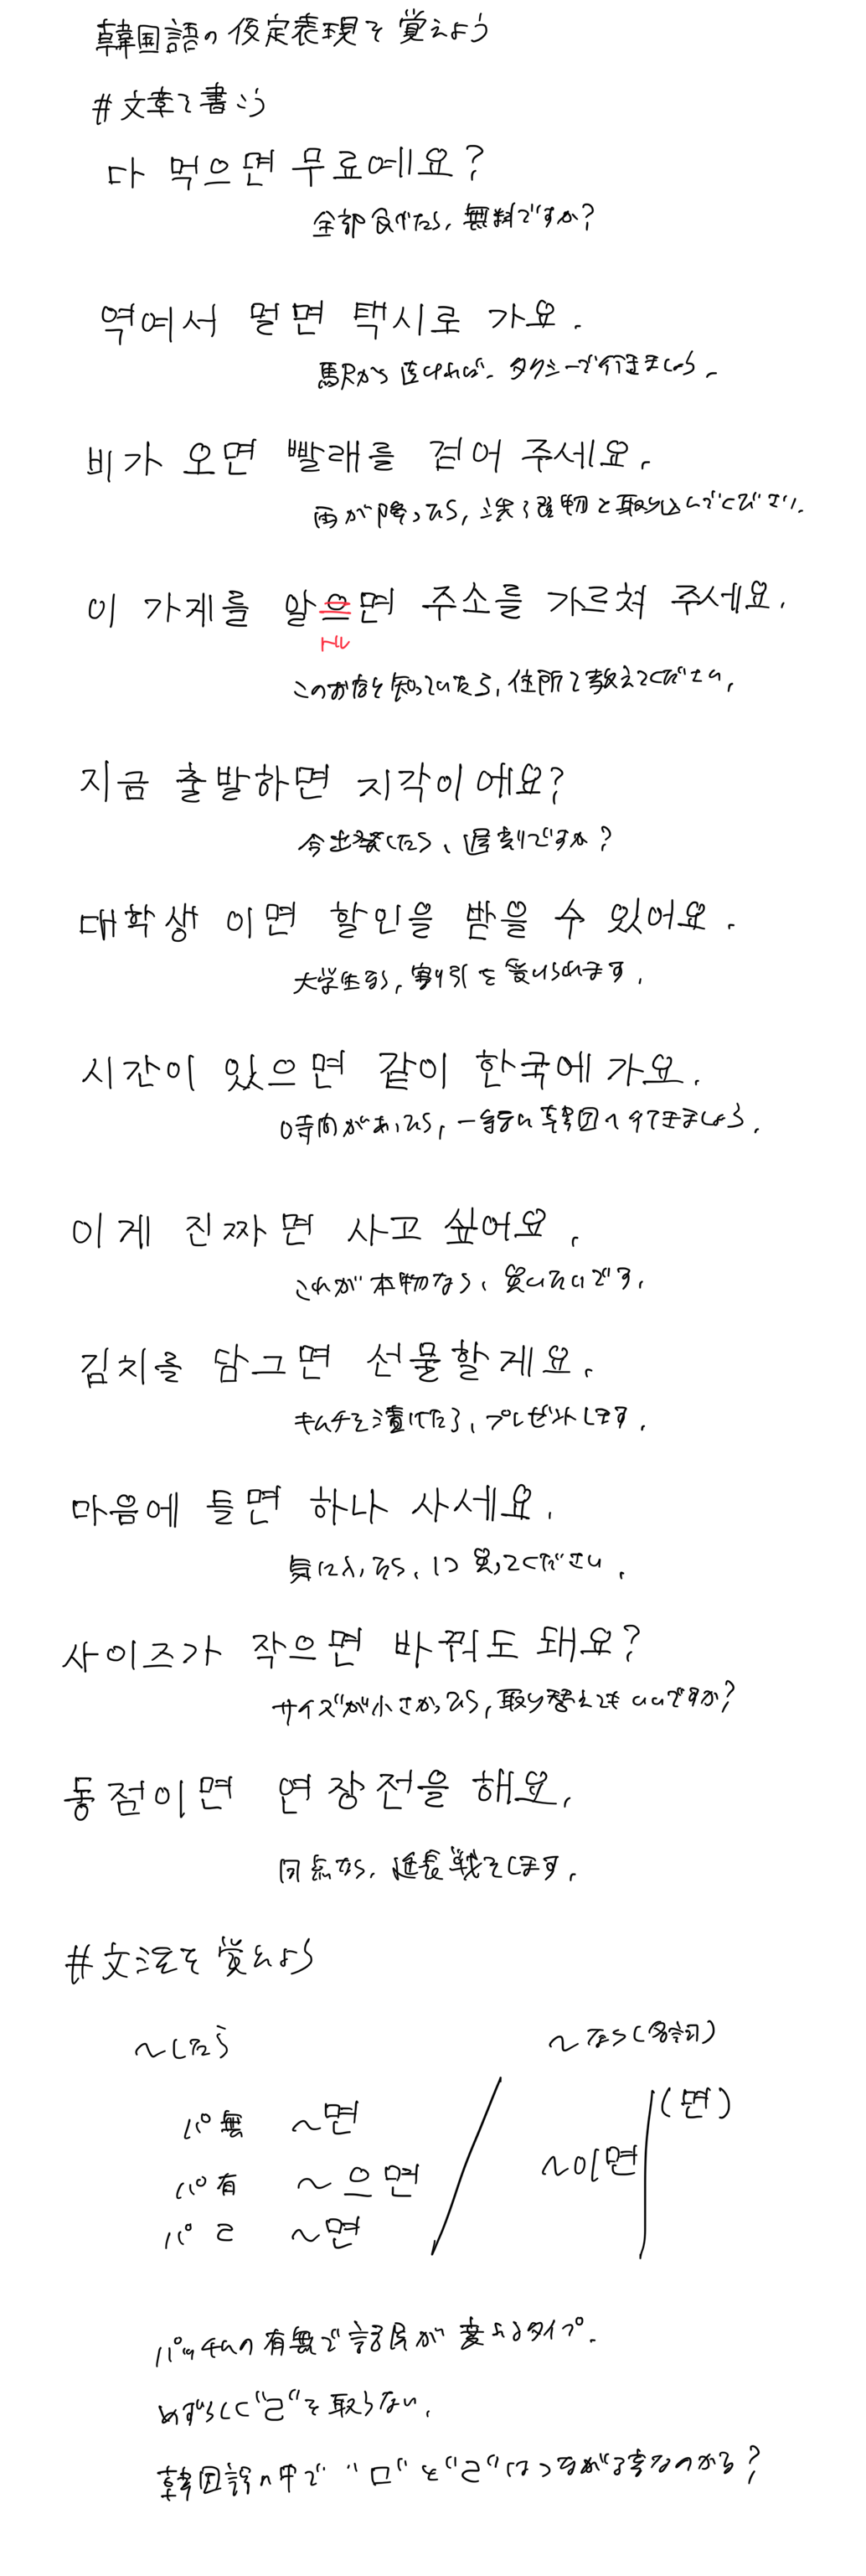 韓国語の仮定表現を覚えよう
#文章で書こう
다 먹으면 무료예요?
全部食べたら、無料ですか?
역에서 멀면 택시로 가요.
駅から遠ければ、タクシーで行きましょう。
비가 오면 빨래를 걷어 주세요.
雨が降ったら、洗濯物を取り込んでください。
이 가게를 알으면 주소를 가르쳐 주세요.
トル
このお店を知っていたら、住所を教えてください。
지금 출발하면 지각이에요?
今出発したら、遅刻ですか?
대학생이면 할인을 받을 수 있어요.
大学生なら、割り引きを受けられます。
시간이 있으면 같이 한국에 가요.
時間があったら、一緒に韓国へ行きましょう。
이게 진짜면 사고 싶어요.
これが本物なら、買いたいです。
김치를 담그면 선물할게요.
キムチを漬けたら、プレゼントします。
마음에 들면 하나 사세요.
気に入ったら、1つ買ってください。
사이즈가 작으면 바꿔도 돼요?
サイズが小さかったら、取り替えてもいいですか?
동점이면 연장전을 해요.
同点なら、延長戦をします。
#文法を覚えよう
〜したら 〜なら(名詞)
パ無 〜면 (면)
パ有 〜으면 〜이면
パㄹ 〜면
パッチムの有無で語尾が変えるタイプ。
めずらしく"ㄹ"を取らない。
韓国語の中で"ㅁ"と"ㄹ"はつながる音なのかな?